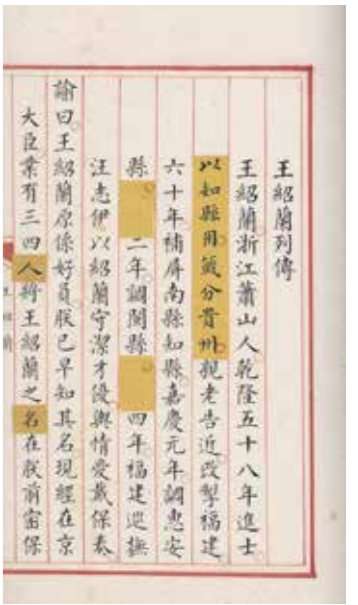 王紹蘭列傳
王紹蘭浙江蕭山人乾隆五十八年進士
以知縣用籤分貴州親老告近改掣福建
六十年補屏南縣知縣嘉慶元年調惠安
縣二年調閩縣四年福建巡撫
汪志伊以紹蘭守潔才優輿情愛戴保奏
諭曰王紹蘭原係好員朕已早知其名現經在京
大臣業有三四人將王紹蘭之名在朕前密保